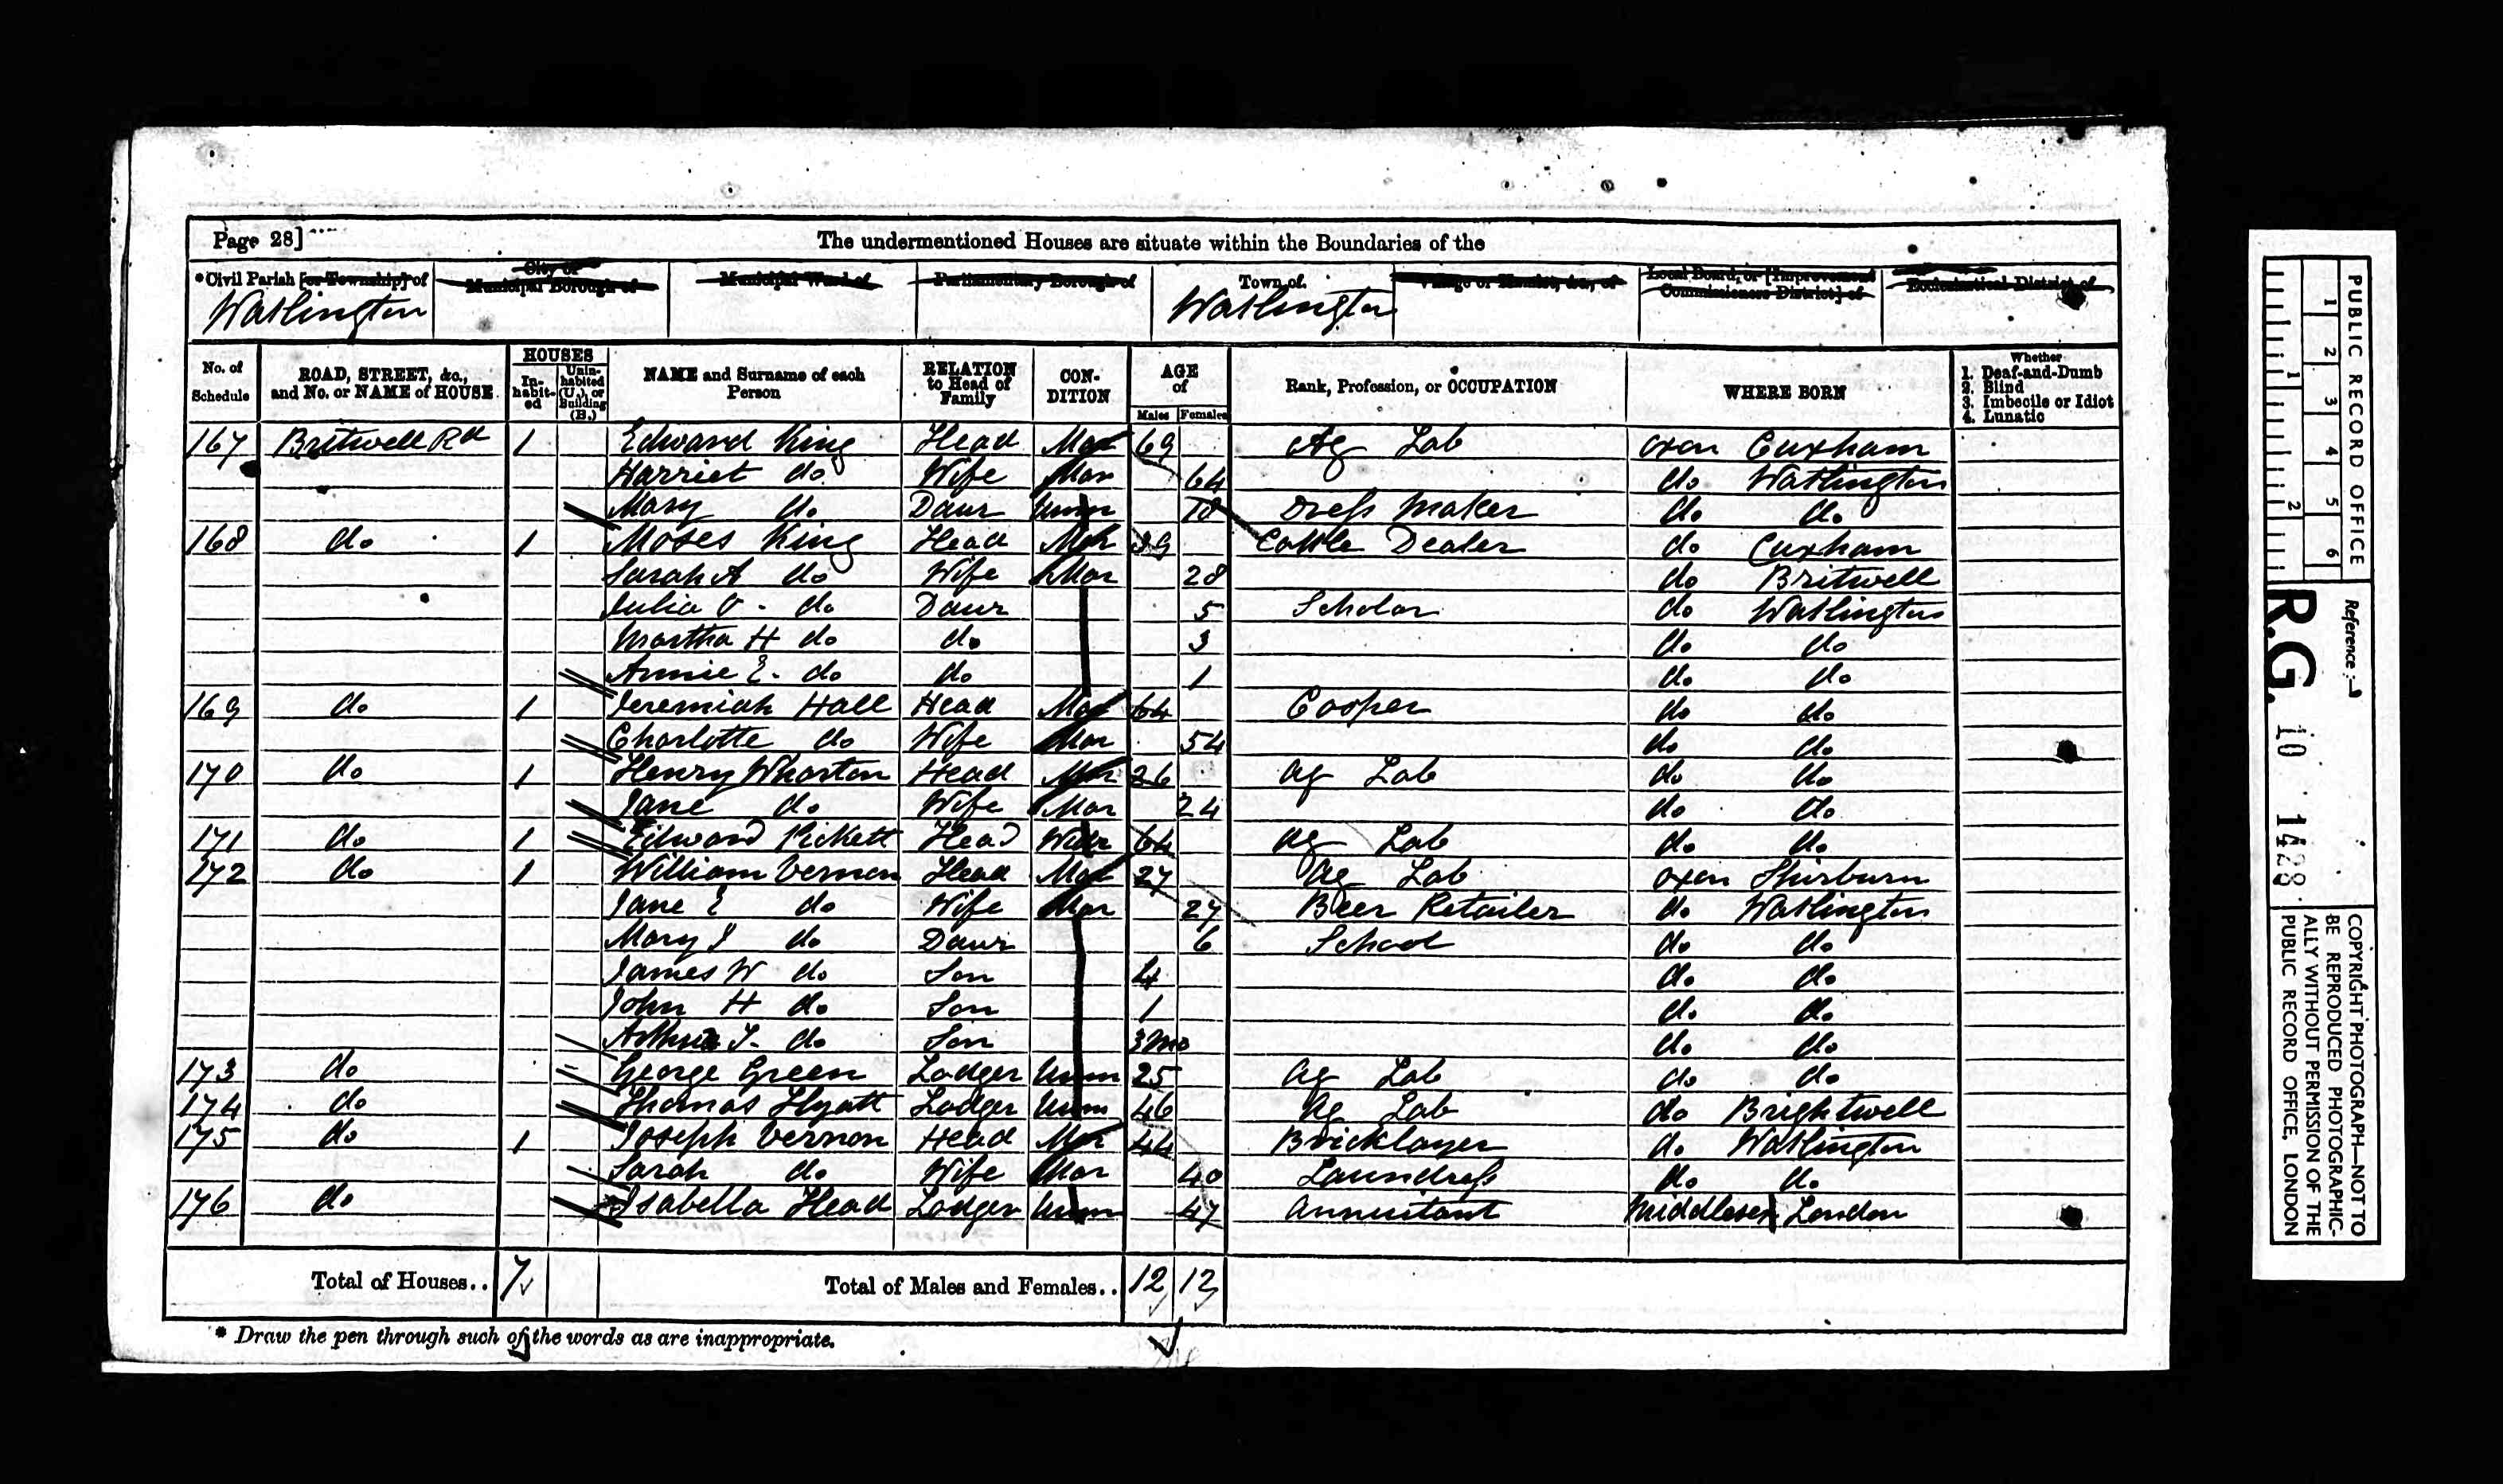 Page 28]
The undermentioned Houses are situate within the Boundaries of the
*Civil Parish [or Township] of
City or Municipal Borough of
Municipal Ward of
Parliamentary Borough of
Town of
Village or Hamlet, &c., of
Local Board, or [Improvement Commissioners District] of
Ecclesiastical District of
Watlington Watlington
No. of Schedule
ROAD, STREET, &c., and No. or NAME of HOUSE
HOUSES
In-habit-ed
Unin-habited (U.), or Building (B.)
NAME and Surname of each Person
RELATION to Head of Family
CON-DITION
AGE of
Males Females
Rank, Profession, or OCCUPATION
WHERE BORN
Whether
1. Deaf-and-Dumb
2. Blind
3. Imbecile or Idiot
4. Lunatic
167 Britwell Rd 1 Edward King Head Mar 69 Ag Lab Oxon Cuxham
Harriet do Wife Mar 64 do Watlington
Mary do Daur Unm 18 Dress Maker do do
168 do 1 Moses King Head Mar 39 Cattle Dealer do Cuxham
Sarah A do Wife Mar 28 do Britwell
Julia do Daur 5 Scholar do Watlington
Martha H do do 3 do do
Annie E. do do 1 do do
169 do 1 Jeremiah Hall Head Mar 64 Cooper do do
Charlotte do Wife Mar 54 do do
170 do 1 Henry Wharton Head Mar 26 Ag Lab do do
Jane do Wife Mar 24 do do
171 do 1 Edward Pickett Head Widr 64 Ag Lab do do
172 do 1 William Vernon Head Mar 27 Ag Lab Oxon Shirburn
Jane E do Wife Mar 27 Beer Retailer do Watlington
Mary J do Daur 6 School do do
James W do Son 4 do do
John H do Son 1 do do
Arthur T. do Son 3mo do do
173 do George Green Lodger Unm 25 Ag Lab do do
174 do Thomas Hyatt Lodger Unm 46 Ag Lab do Brightwell
175 do 1 Joseph Vernon Head Mar 44 Bricklayer do Watlington
Sarah do Wife Mar 40 Laundress do do
176 do Isabella Head Lodger Unm 47 Annuitant Middlesex London
Total of Houses.. 7 Total of Males and Females.. 12 12
* Draw the pen through such of the words as are inappropriate.
PUBLIC RECORD OFFICE
1 2 3 4 5 6
1 2
Reference:-
R.G. 10 1428
COPYRIGHT PHOTOGRAPH—NOT TO
BE REPRODUCED PHOTOGRAPHIC-
ALLY WITHOUT PERMISSION OF THE
PUBLIC RECORD OFFICE, LONDON